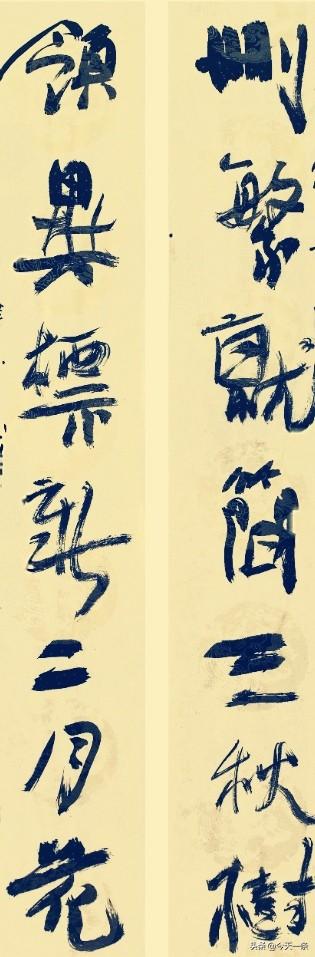 删繁就简三秋树
领异标新二月花
头条@今天一条